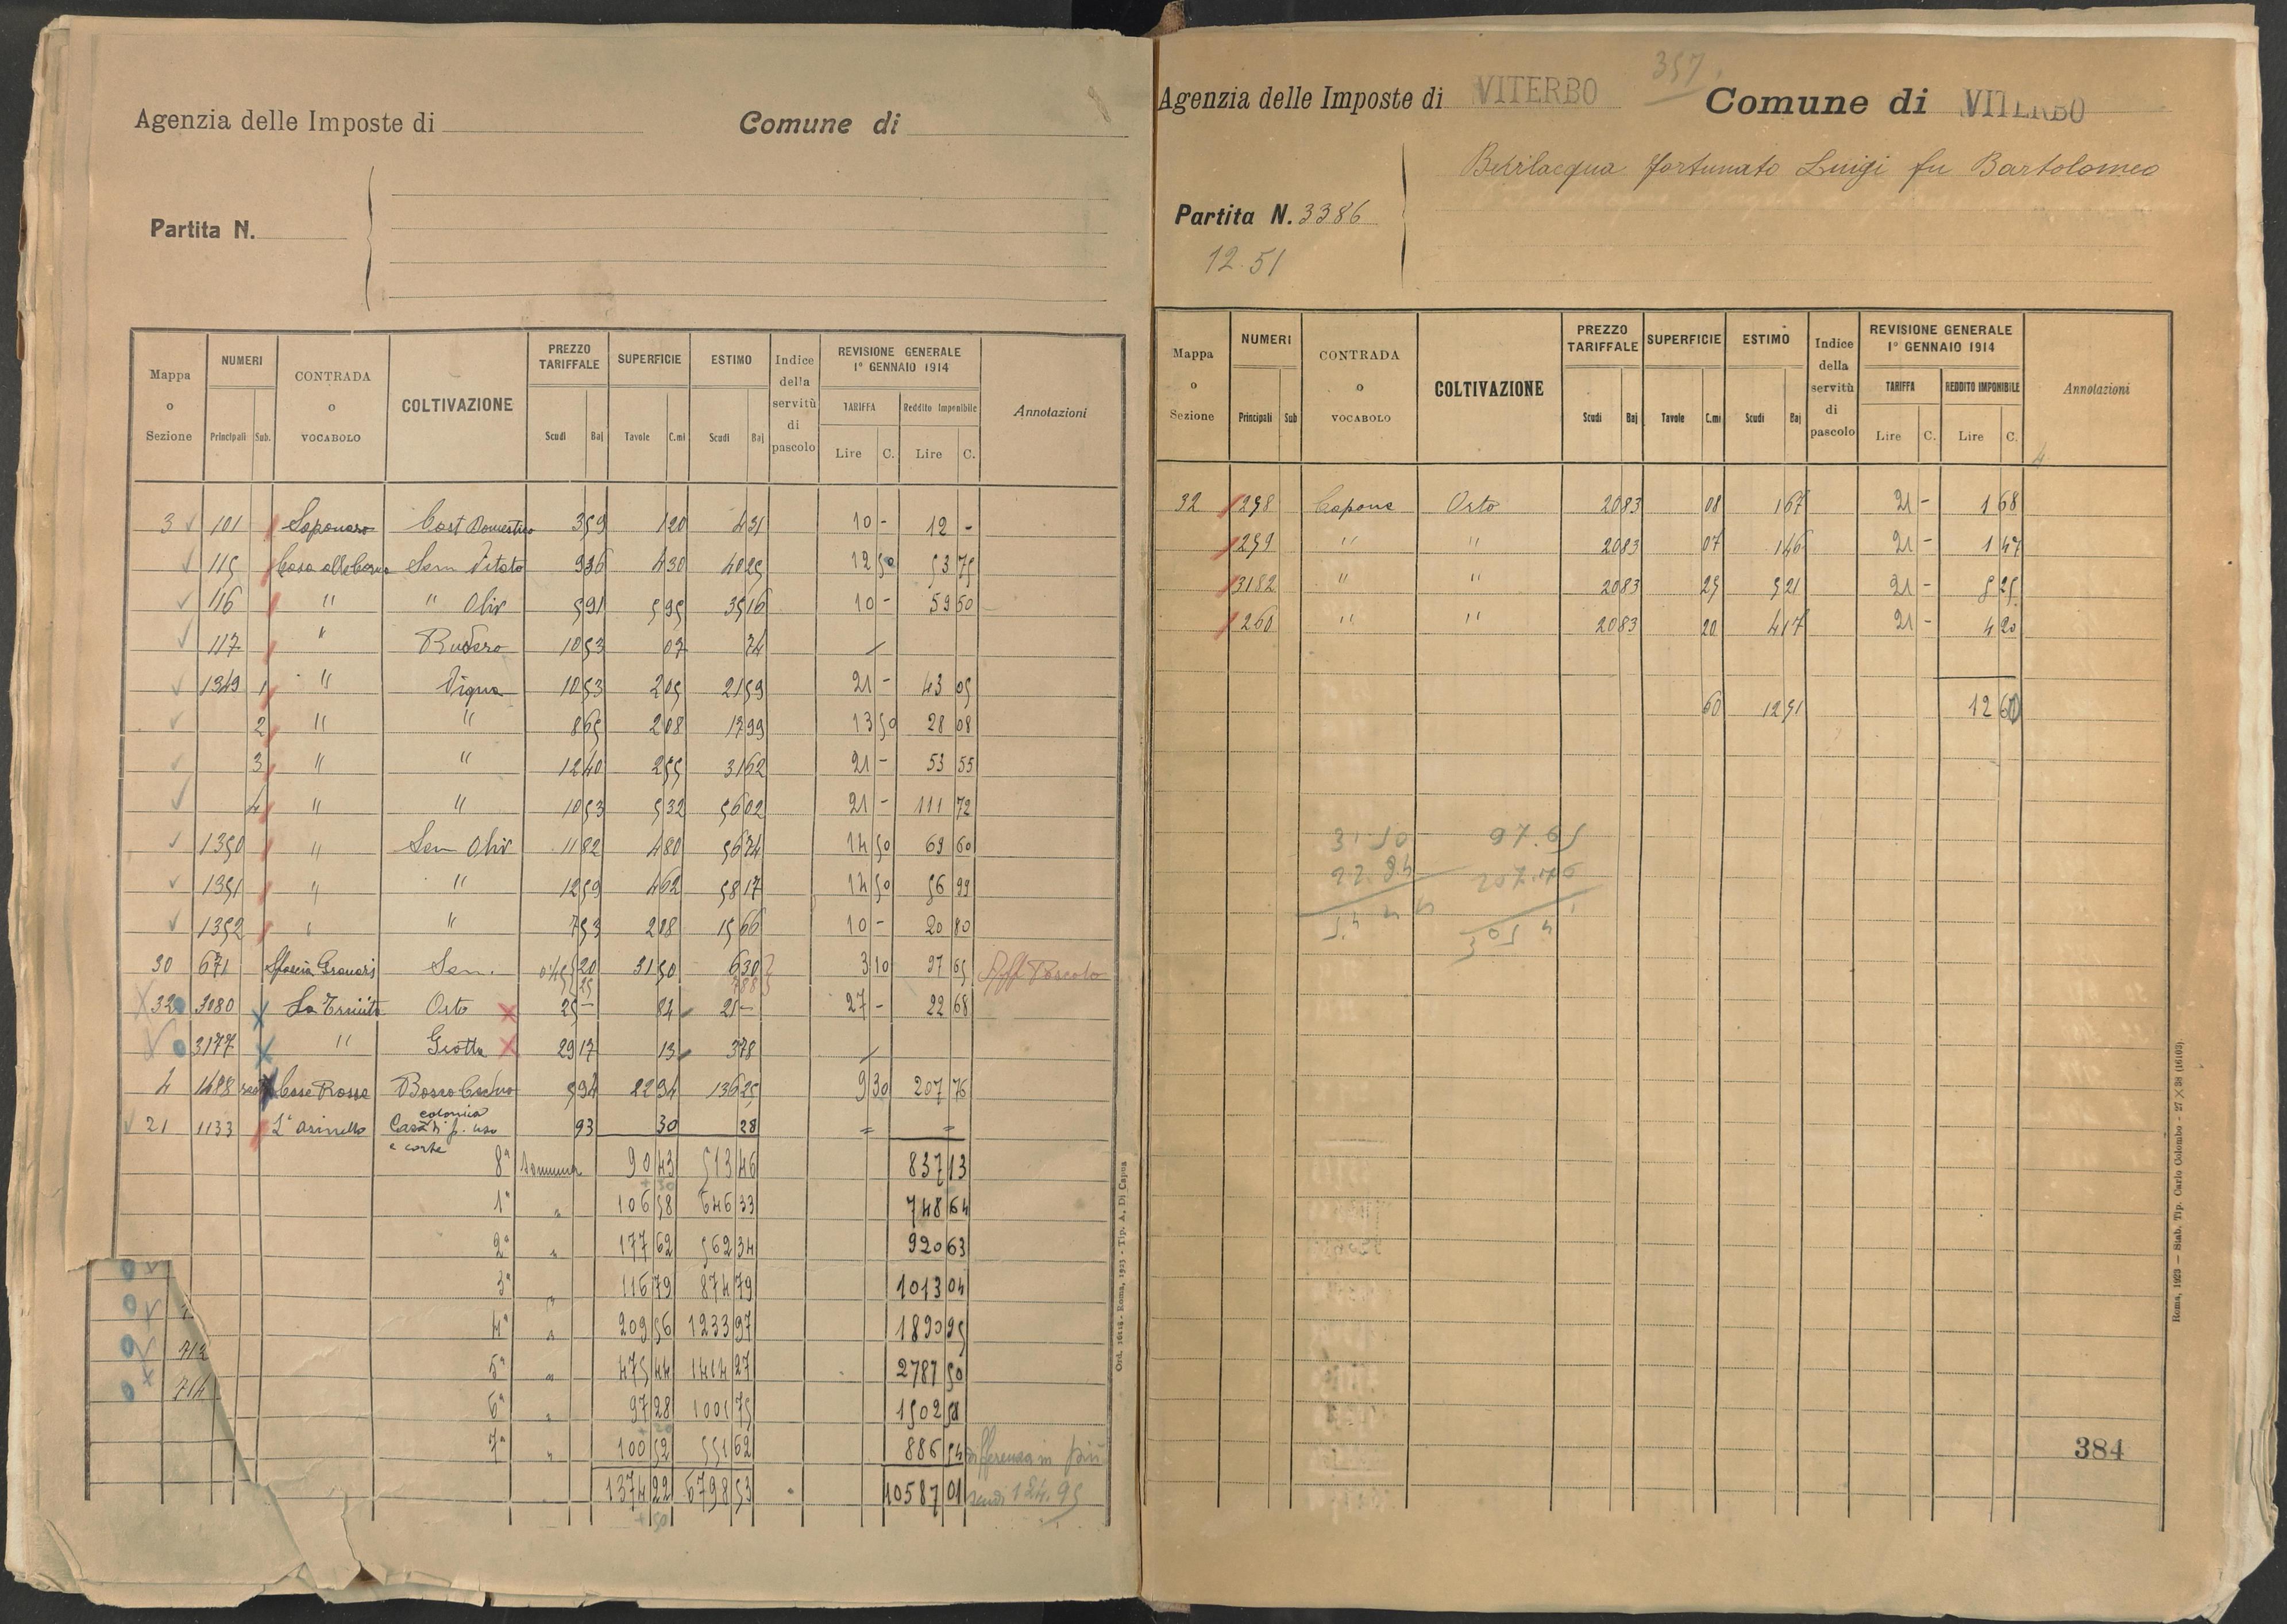 Agenzia delle Imposte di
Comune di
Partita N.
Mappa o Sezione | NUMERI Principali Sub. | CONTRADA o VOCABOLO | COLTIVAZIONE | PREZZO TARIFFALE Scudi Baj | SUPERFICIE Tavole C.mi | ESTIMO Scudi Baj | Indice della servitù di pascolo | REVISIONE GENERALE 1º GENNAIO 1914 TARIFFA Lire C. Reddito Imponibile Lire C. | Annotazioni
3 101 Saponaro Cast Domestico 3 59 1 20 4 31 10 - 12 -
115 Casa alle Corna Sem Vitato 9 36 4 30 40 25 12 50 53 75
116 " " Oliv 5 91 5 95 35 16 10 - 59 50
117 " Rudero 10 53 07 74
1349 1 " Vigna 10 53 2 05 21 59 21 - 43 05
2 " " 8 65 2 08 17 99 13 50 28 08
3 " " 12 40 2 55 31 62 21 - 53 55
4 " " 10 53 5 32 56 02 21 - 111 72
1350 " Sem Oliv 11 82 4 80 56 74 14 50 69 60
1351 " " 12 59 4 62 58 17 14 50 66 99
1352 " " 7 53 2 08 15 66 10 - 20 80
30 671 Sem. 20 31 50 6 30 3 10 97 65 Aff Pascolo
32 3080 La Trinità Orto 25 - 84 21 - 27 - 22 68
3177 " Grotta 29 17 13 3 78
4 1488 Case Rosse Bosco Ceduo 5 94 22 34 136 25 9 30 207 76
21 1133 L'Asinello Casa colonica di p. uso e corte 93 30 28 = =
8ª Somma 90 43 513 46 837 13
1ª " 106 58 646 33 748 64
2ª " 177 62 562 34 920 63
3ª " 116 79 874 79 1013 04
4ª " 209 56 1233 97 1890 95
5ª " 475 44 1414 27 2787 50
6ª " 97 28 1001 75 1502 58
7ª " 100 52 551 62 886 54 differenza in più
1374 22 6798 53 10587 01 scudi 124.95
+ 50
712
714
Ord. 16116 - Roma, 1923 - Tip. A. Di Capua
357
Agenzia delle Imposte di VITERBO
Comune di VITERBO
Bevilacqua Fortunato Luigi fu Bartolomeo
Partita N. 3386
12.51
Mappa o Sezione | NUMERI Principali Sub | CONTRADA o VOCABOLO | COLTIVAZIONE | PREZZO TARIFFALE Scudi Baj | SUPERFICIE Tavole C.mi | ESTIMO Scudi Baj | Indice della servitù di pascolo | REVISIONE GENERALE 1º GENNAIO 1914 TARIFFA Lire C. REDDITO IMPONIBILE Lire C. | Annotazioni
32 258 Capone Orto 20 83 08 1 67 21 - 1 68
259 " " 20 83 07 1 46 21 - 1 47
3182 " " 20 83 25 5 21 21 - 5 25
260 " " 20 83 20 4 17 21 - 4 20
60 12 51 12 60
31.50 97.65
22.34 207.76
384
Roma, 1923 — Stab. Tip. Carlo Colombo - 27 X 38 (16103)